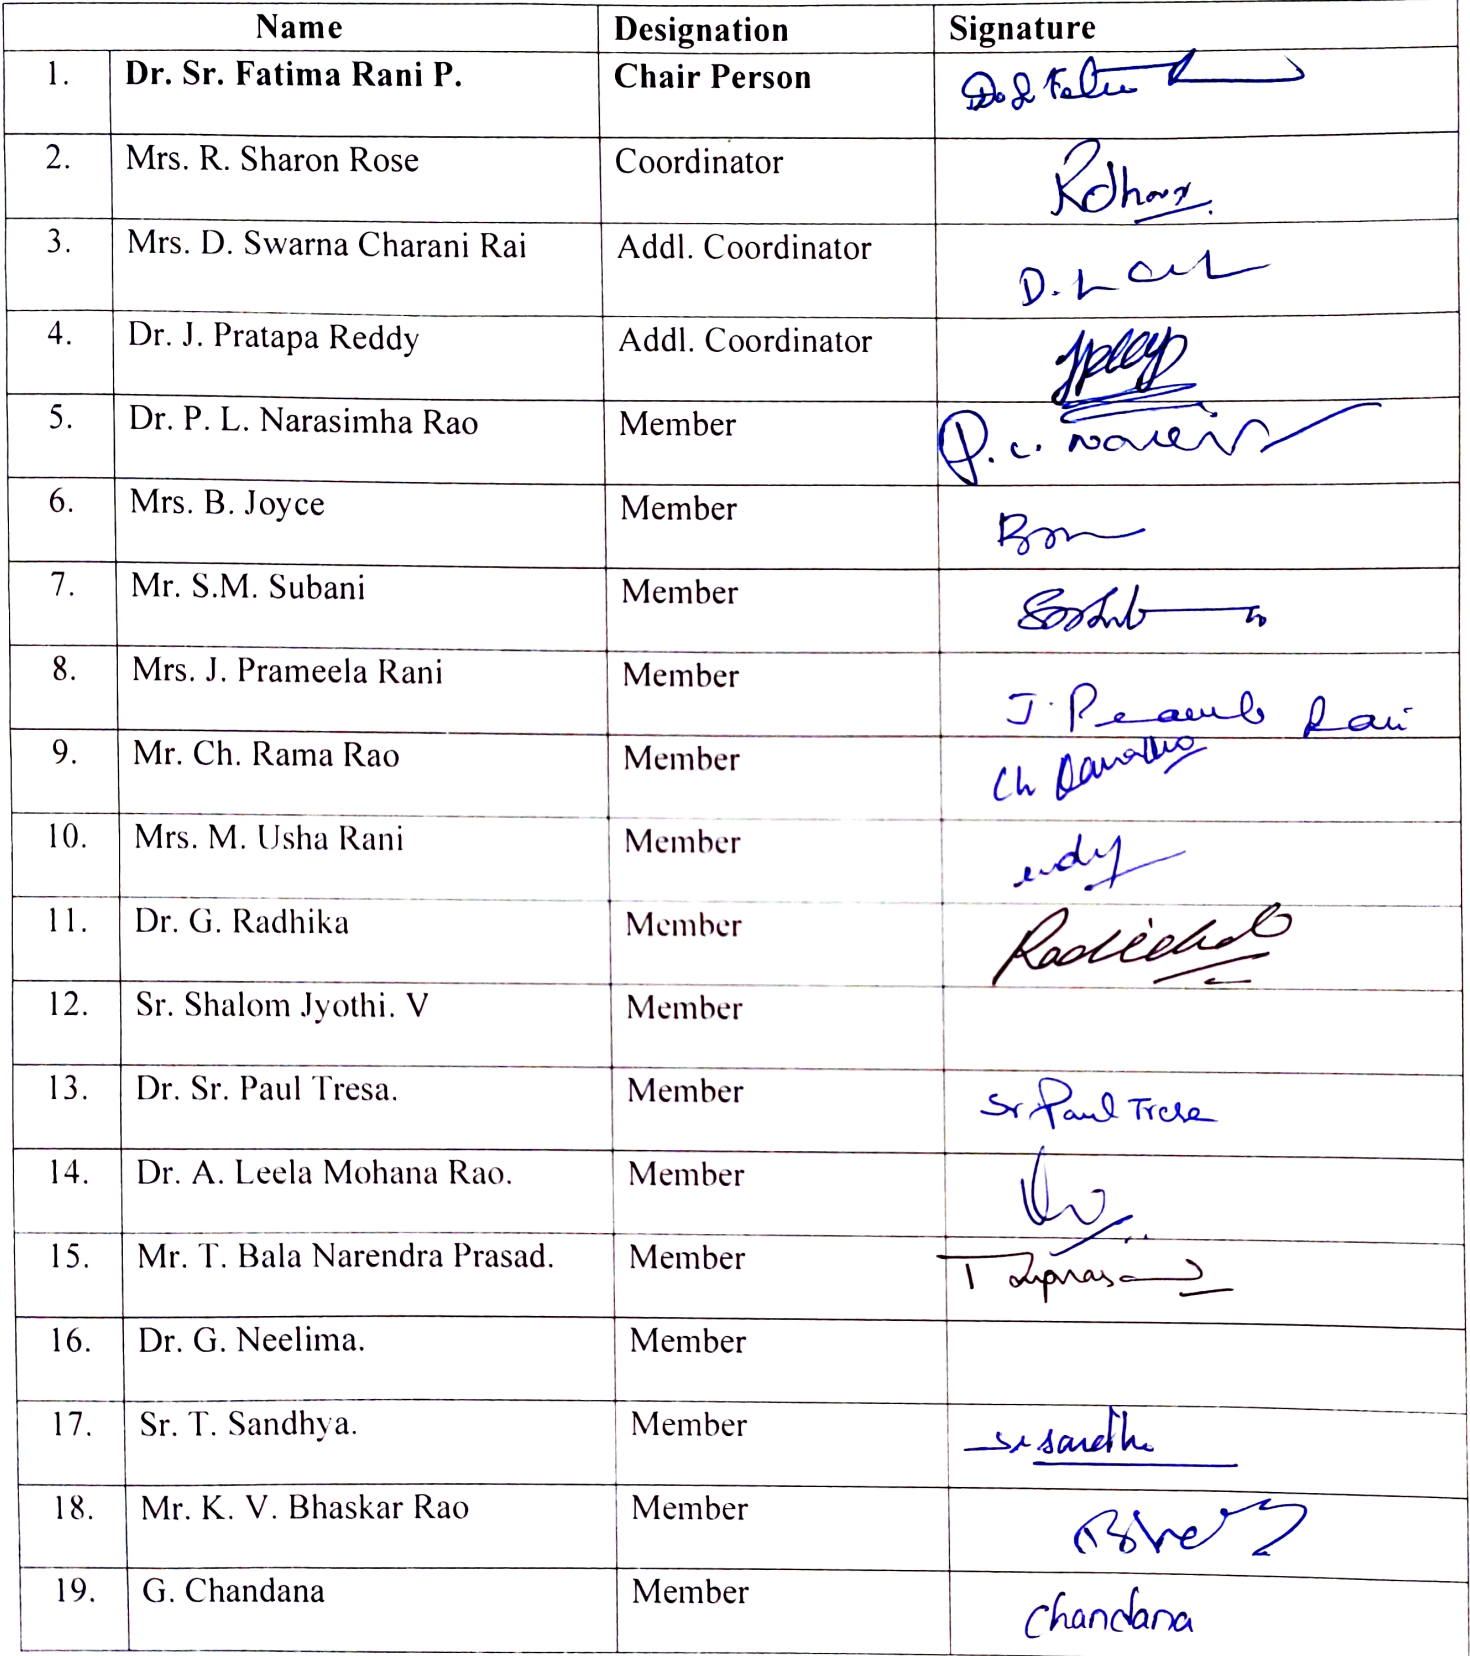 Name Designation Signature
1. Dr. Sr. Fatima Rani P. Chair Person
2. Mrs. R. Sharon Rose Coordinator
3. Mrs. D. Swarna Charani Rai Addl. Coordinator D.
4. Dr. J. Pratapa Reddy Addl. Coordinator
5. Dr. P. L. Narasimha Rao Member
6. Mrs. B. Joyce Member
7. Mr. S.M. Subani Member
8. Mrs. J. Prameela Rani Member J. Rani
9. Mr. Ch. Rama Rao Member Ch
10. Mrs. M. Usha Rani Member
11. Dr. G. Radhika Member
12. Sr. Shalom Jyothi. V Member
13. Dr. Sr. Paul Tresa. Member Sr Paul Tresa
14. Dr. A. Leela Mohana Rao. Member
15. Mr. T. Bala Narendra Prasad. Member
16. Dr. G. Neelima. Member
17. Sr. T. Sandhya. Member
18. Mr. K. V. Bhaskar Rao Member
19. G. Chandana Member Chandana